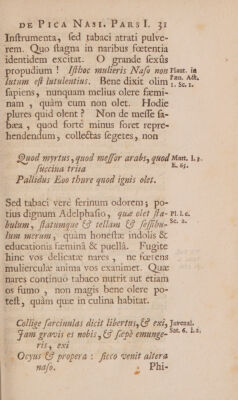 DE PICA NASI. PARS I. 31
Instrumenta, sed tabaci atrati pulve-
rem. Quo stagna in naribus fœtentia
identidem excitat. O grande sexûs
propudium ! Isthoc mulieris Naso non Plaut. in
lutum est lutulentius. Bene dixit olim Pœn. Act.
1. Sc. 1.
sapiens, nunquam melius olere fæmi-
nam , quàm cum non olet. Hodie
plures quid olent ? Non de messe sa-
bæa , quod fortè minus foret repre-
hendendum, collectas segetes, non
Quod myrtus, quod messor arabs, quod Mart. l. 3.
succina trita E. 65.
Pallidus Eoo thure quod ignis olet.
Sed tabaci verè ferinum odorem; po-
tius dignum Adelphasio, quæ olet sta- Pl. l. c.
bulum, statumque & sellam & sessibu- Sc. 2.
lum merum, quàm honestæ indolis &
educationis fæminâ & puellâ. Fugite
hinc vos delicatæ nares , ne fœtens
mulierculæ anima vos exanimet. Quæ
nares continuo tabaco nutrit aut etiam
os fumo , non magis bene olere po-
test, quàm quæ in culina habitat.
Collige sarcinulas dicit libertus, & exi, Juvenal.
Jam gravis es nobis, & sæpè emunge- Sat. 6. l. 2.
ris, exi
Ocyus & propera : sicco venit altera
naso. Phi-